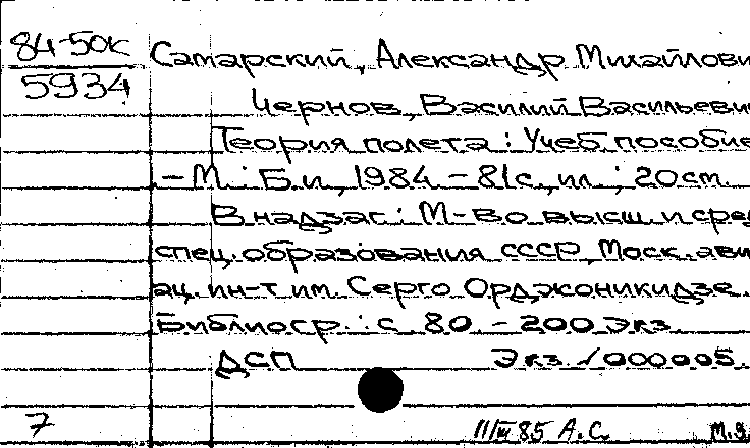 84-50к
5934
Самарский, Александр Михайлови
Чернов, Василий Васильеви
Теория полета : Учеб. пособие
- М. : Б.и., 1984 - 81 с., ил. ; 20 см.
В надзаг.: М-во высш. и сред.
спец. образования СССР, Моск. ави
ац. ин-т им. Серго Орджоникидзе.
Библиогр.: с. 80 - 200 экз.
ДСП Экз. √000005
7 11/III 85 А.С. М.Я